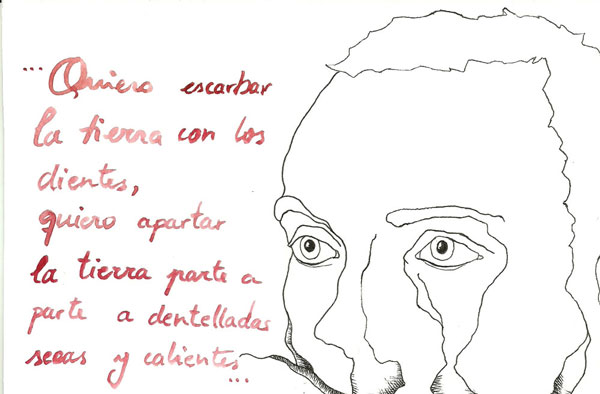 ...Quiero escarbar
la tierra con los
dientes,
quiero apartar
la tierra parte a
parte a dentelladas
secas y calientes
...